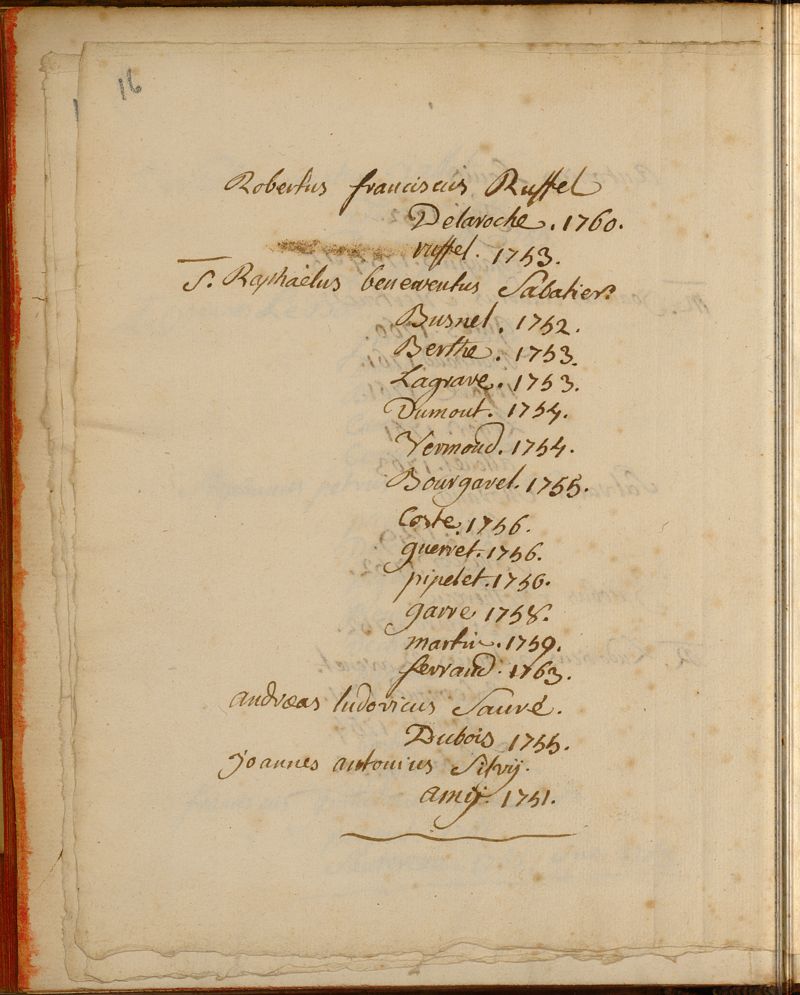 16
Robertus franciscus Ruffel
Delaroche. 1760.
ruffel. 1753.
S. Raphaëlus benevventus Sabatier.
Busnel. 1752.
Berthe. 1753.
Lagrave. 1753.
Dumout. 1754.
Vermond. 1754.
Bourgavel. 1755.
Coste. 1756.
guerret. 1756.
pipelet. 1756.
garre 1758.
martin. 1759.
ferrand. 1763.
andræas ludovicus Sauré.
Dubois 1755.
joannes antonius Silvij.
amij. 1751.